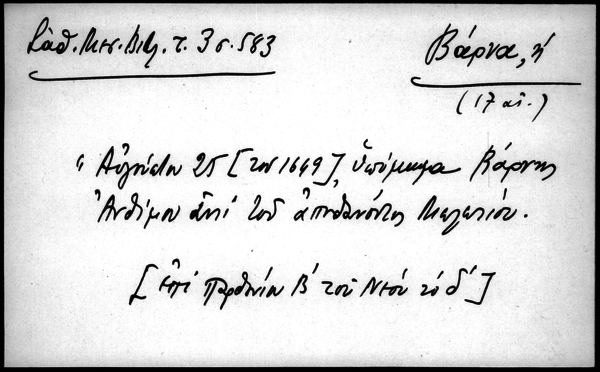 Σάθ. Μεσ. Βιβ. τ. 3 σ. 583
Βάρνα, ἡ
(17 αἰ.)
"Αὐγούστου 25 [του 1649], ὑπόμνημα Βάρνης
Ἀνθίμου ἀντί τοῦ ἀποθανόντος Μελετίου.
[ἐπί Παρθενίου Β' τοῦ Νέου τό δ']